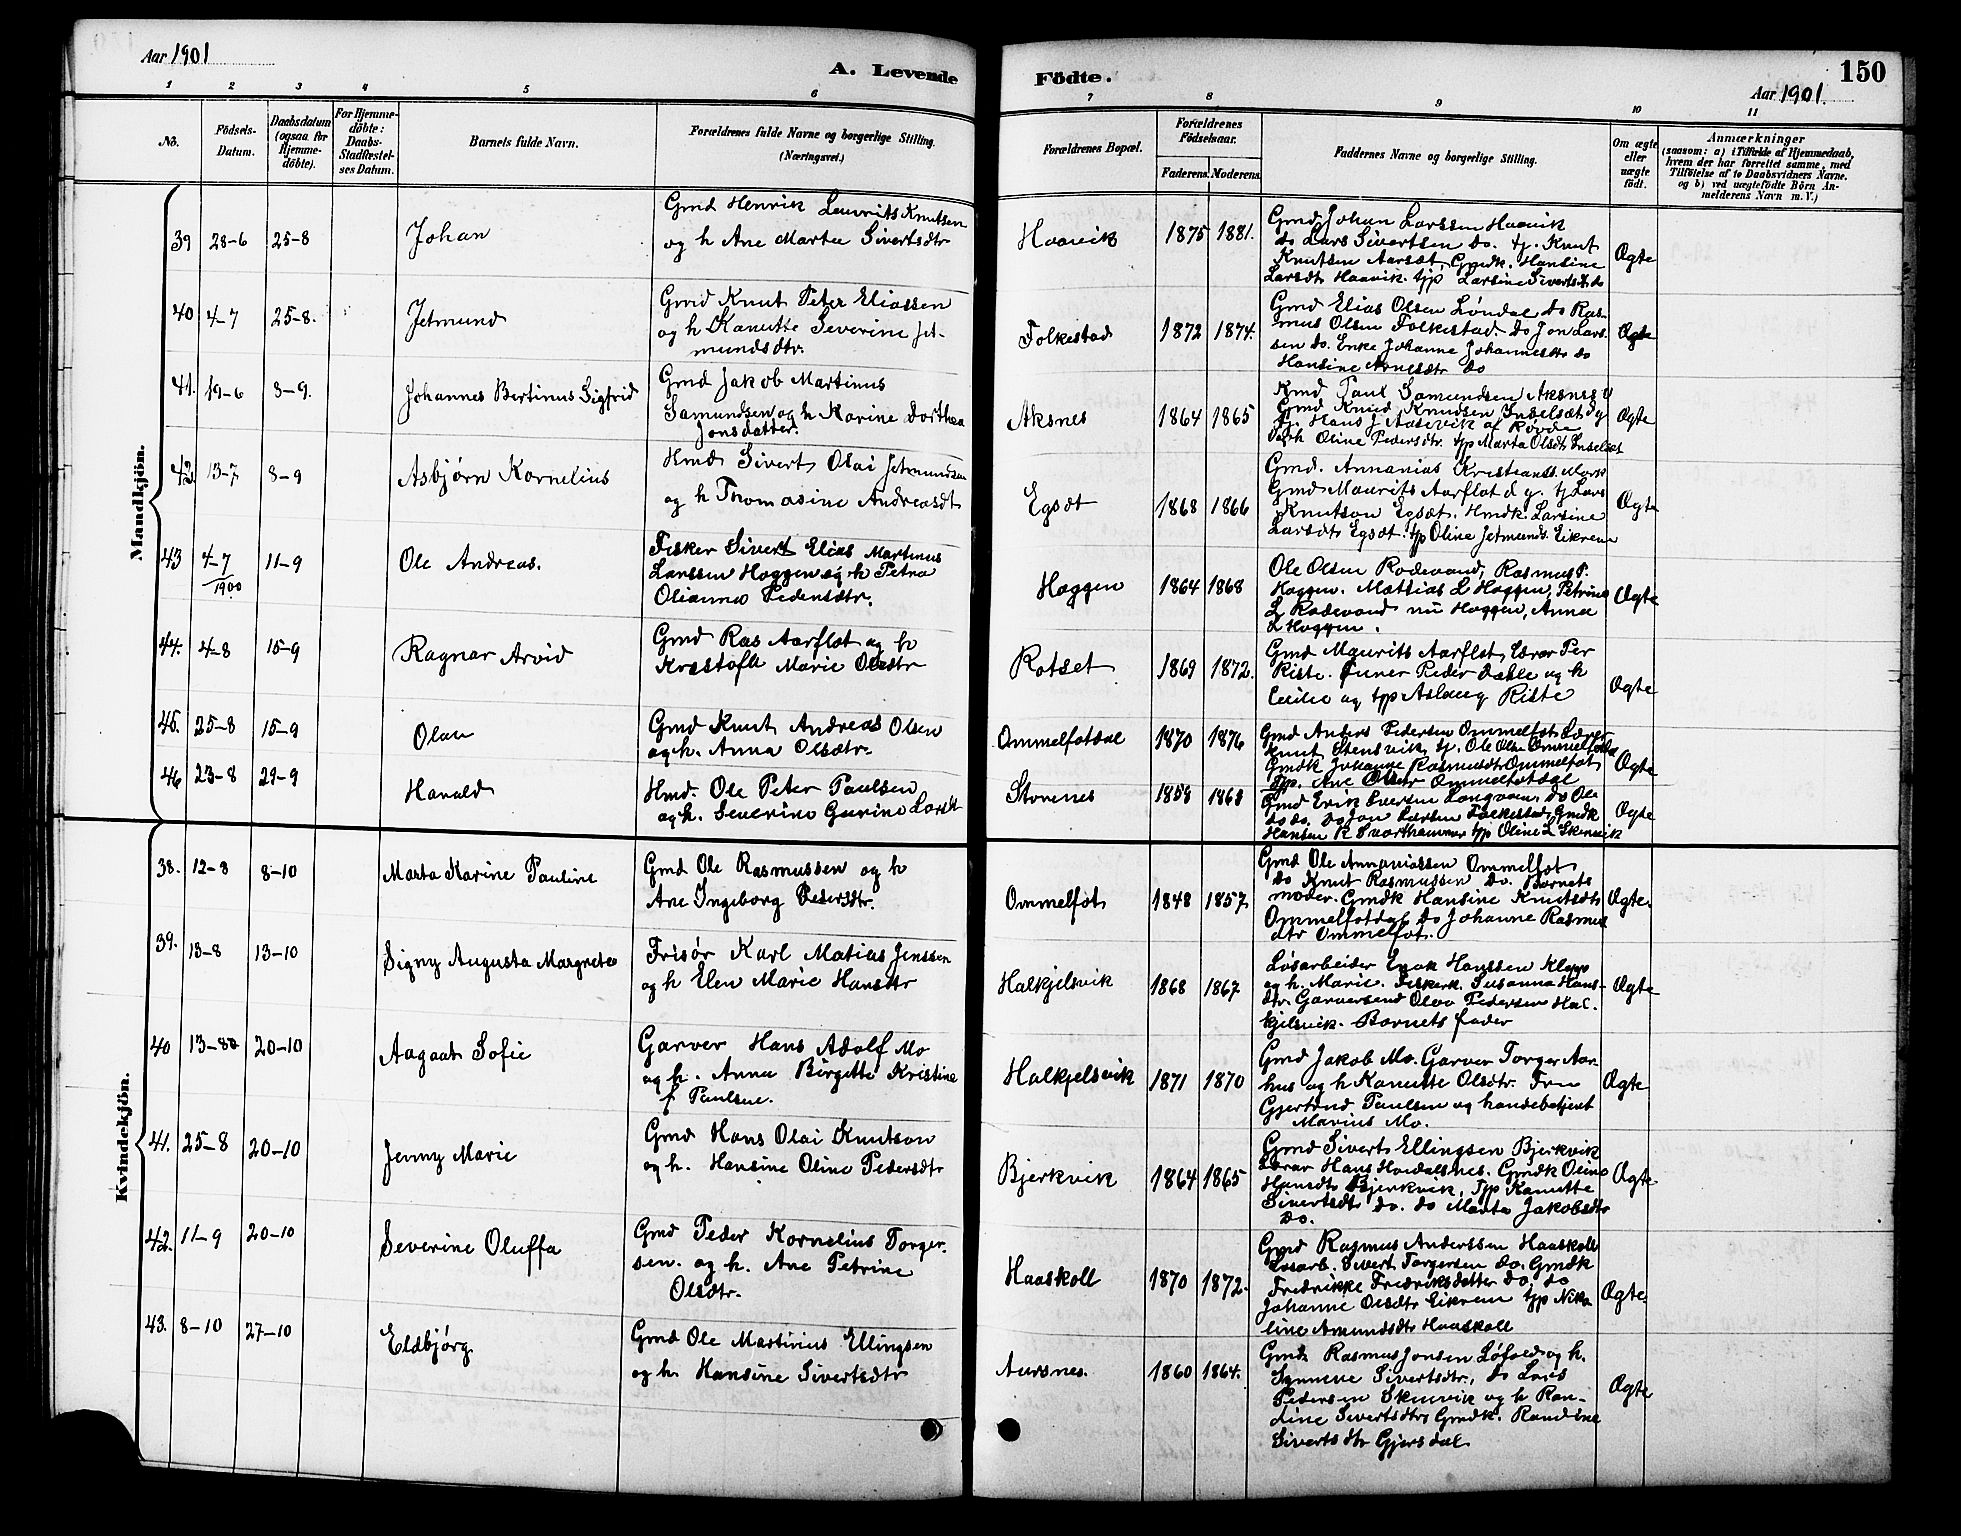 Aar 1901
A. Levende
Födte.
150
Aar 1901.
1 2 3 4 5 6 7 8 9 10 11
No.
Födsels-Datum.
Daabsdatum (ogsaa for Hjemmedöbte).
For Hjemmedöbte: Daabs-Stadfæstelses Datum.
Barnets fulde Navn.
Forældrenes fulde Navne og borgerlige Stilling.
(Næringsvei.)
Forældrenes Bopæl.
Forældrenes Födselsaar.
Faderens. Moderens.
Faddernes Navne og borgerlige Stilling.
Om ægte eller uægte födt.
Anmærkninger
(saasom: a) i Tilfælde af Hjemmedaab, hvem der har forrettet samme, med Tilföielse af to Daabsvidners Navne. og b) ved uægtefödte Börn Anmelderens Navn m. V.)
Mandkjön.
39 28-6 25-8 Johan
Gmd Henrik Laurits Knutsen
og h Ane Marta Sivertsdtr
Haavik 1875 1881.
Gmd Johan Larssen Haavik
do Lars Sivertsen do. tj. Knut
Knutsen Aarsæt, Gmdk. Hansine
Larsdtr Haavik. tjp Larsine Sivertsdtr do
Ægte
40 4-7 25-8. Jetmund
Gmd Knut Peter Eliassen
og h Kanutte Severine Jet-
mundsdtr.
Folkestad 1872 1874.
Gmd Elias Olsen Løndal do Ras-
mus Olsen Folkestad do Jon Lars-
sen do. Enke Johanne Johannesdtr do
Hansine Arnesdtr do
Ægte
41. 19-6 8-9. Johannes Bertinus Sigfrid
Gmd Jakob Martinus
Samundsen og h Karine Dorthea
Jonsdatter.
Aksnes 1864 1865
Kmd Paul Samundsen Aksnes
Gmd Knud Knudsen Inselsæt
tj. Hans J Aasevik af Rovde
Oline Pedersdtr. tjp Marta Olsdtr Inselsæt
Ægte
42. 13-7 8-9 Asbjørn Kornelius
Hmd Sivert Olai Jetmundsen
og h Thomasine Andreasdt
Egsæt 1868 1866
Gmd. Annanias Kristianss. Mork
Gmd Maurits Aarflot d y. tj Lars
Knutson Egsæt. Hmdk. Larsine
Larsdtr Egsæt. tjp Oline Jetmunds. Eikrem
Ægte
43 4-7 1900 11-9 Ole Andreas.
Fisker Sivert Elias Martinus
Larssen Haggen og h Petra
Olianna Pedersdtr.
Haggen 1864 1868
Ole Olsen Rødevand, Rasmus P.
Haggen. Mattias L Haggen, Petrine
L Rødevand nu Haggen, Anna
L Haggen.
Ægte
44. 4-8 15-9 Ragnar Arvid
Gmd Ras Aarflot og h
Kristofa Marie Olsdtr
Rotset 1869 1872.
Gmd Maurits Aarflot, Lærer Per
Riste. Peder Dahle og h
Cecilie og tjp Aslaug Riste
Ægte
45. 25-8 15-9 Olav
Gmd Knut Andreas Olsen
og h. Anna Olsdtr.
Ommelfotdal 1870 1876
Gmd Anders Pedersen Ommelfot. Lærer
Knut Stensvik, tj. Ole Olsen Ommelfotdal
Gmdk Johanne Rasmusdtr Ommelfot
tjp. Ane Olsdtr Ommelfotdal
Ægte
46 23-8 29-9 Harald
Hmd. Ole Peter Paulsen
og h. Severine Gurine Larsdt
Storenes 1858 1868
Gmd Erik Iversen Langvaen, do Ole
do do. do Jon Larsen Folkestad, Gmdk
Hansen R Svarthammer tjp Oline L Skinvik
Ægte
Kvindekjön.
38. 12-8 8-10 Marta Karine Pauline
Gmd Ole Rasmussen og h
Ane Ingeborg Pedersdtr.
Ommelfot 1848 1857
Gmd Ole Annaniassen Ommelfot
do Knut Rasmussen do. Barnets
moder. Gmdk Hansine Knutsdtr
Ommelfotdal do Johanne Rasmus
dtr Ommelfot.
Ægte.
39. 13-8 13-10 Signy Augusta Margrete
Frisør Karl Matias Jenssen
og h Elen Marie Hansdtr
Halkjelsvik 1868 1867
Løsarbeider Enok Hanssen Klepp
og h. Marie. Fiskerk. Susanna Hans-
dtr. Garversvend Olav Pedersen Hal-
kjelsvik. Barnets fader
Ægte
40 13-8 20-10 Aagaat Sofie
Garver Hans Adolf Mo
og h. Anna Birgitte Kristine
f Paulsen.
Halkjelsvik 1871 1870
Gmd Jakob Mo. Garver Torger Aar-
hus og h Kanutte Olsdtr. Fru
Gjertrud Paulsen og handsbetjent
Marius Mo.
Ægte
41. 25-8 20-10 Jenny Marie
Gmd Hans Olai Knutson
og h. Hansine Oline Pedersdtr
Bjerkvik 1864 1865
Gmd Sivert Ellingsen Bjerkvik
Lærar Hans Hovdalsnes. Gmdk Oline
Hansdtr Bjerkvik, Tjp Kanutte
Sivertsdtr do. do Marta Jakobsdtr
do.
Ægte
42. 11-9 20-10 Severine Oluffa
Gmd Peder Kornelius Torger-
sen. og h. Ane Petrine
Olsdtr.
Haaskoll 1870 1872.
Gmd Rasmus Anderssen Haaskoll
Løsarb. Sivert Torgersen do. Gmdk
Fredrikke Fredriksdatter do. do
Johanne Olsdtr Eikrem tjp Niko
line Amundsdtr Haaskoll
Ægte.
43. 8-10 27-10 Eldbjørg
Gmd Ole Martinius Ellingsen
og h. Hansine Sivertsdtr
Aursnes. 1860 1864.
Gmd. Rasmus Jonsen Løfoll og h.
Synneve Sivertsdtr., do Lars
Pedersen Skinvik og h Ran-
dine Sivertsdtr Gmdk. Randine
Sivertsdtr Gjersdal
Ægte